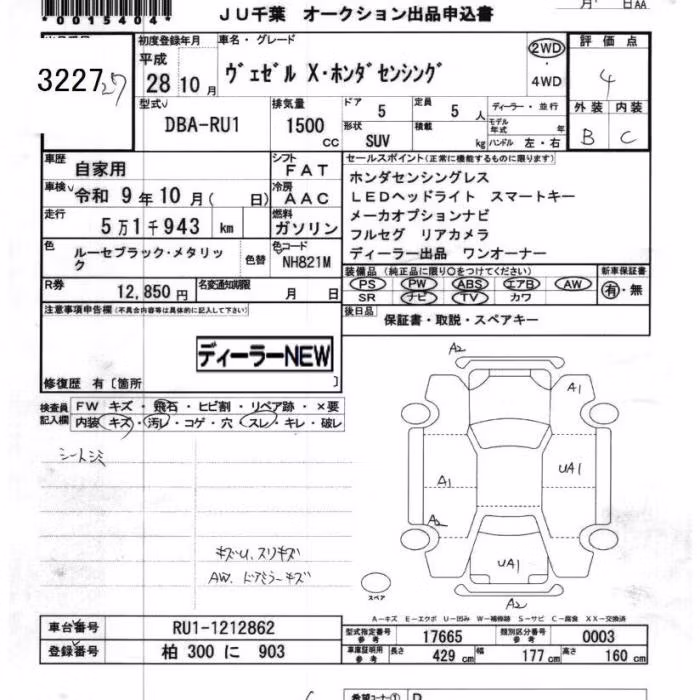 *0015404*
JU千葉 オークション出品申込書
月 日AA
初度登録年月 車名・グレード 評価点
平成 28 10月 ヴェゼル X・ホンダセンシング 2WD ・ 4WD 4
32227
型式 排気量 ドア 定員 ディーラー・並行 外装 内装
DBA-RU1 1500 CC 5 5人 モデル年式 年 B C
形状 SUV 積載 kg ハンドル 左・右
車歴 自家用 シフト FAT セールスポイント(正常に機能するものに限ります)
車検 令和 9年10月( 日) 冷房 AAC ホンダセンシングレス
LEDヘッドライト スマートキー
走行 5万1千943 km 燃料 ガソリン メーカオプションナビ
フルセグ リアカメラ
色 ルーセブラック・メタリック 色替 色コード NH821M ディーラー出品 ワンオーナー
装備品(純正品に限り○をつけてください) 新車保証書
R券 12,850円 名変通知期限 月 日 PS PW ABS エアB AW 有・無
SR ナビ TV カワ
注意事項申告欄(不具合内容等は具体的に記入して下さい) 後日品 保証書・取説・スペアキー
ディーラーNEW
修復歴 有〔箇所 〕
検査員記入欄 FW キズ・飛石・ヒビ割・リペア跡・×要
内装 キズ・汚レ・コゲ・穴・スレ・キレ・破レ
シートシミ
キズU、スリキズ
AW、ドアミラーキズ
A2
A1
A1
UA1
A2
UA1
A2
スペア
A－キズ E－エクボ U－凹み W－補修跡 S－サビ C－腐食 XX－交換済
車台番号 RU1-1212862 型式指定番号 参考 17665 類別区分番号 参考 0003
登録番号 柏 300 に 903 車庫証明用 参考 長さ 429 cm 幅 177 cm 高さ 160 cm
希望コーナー① D